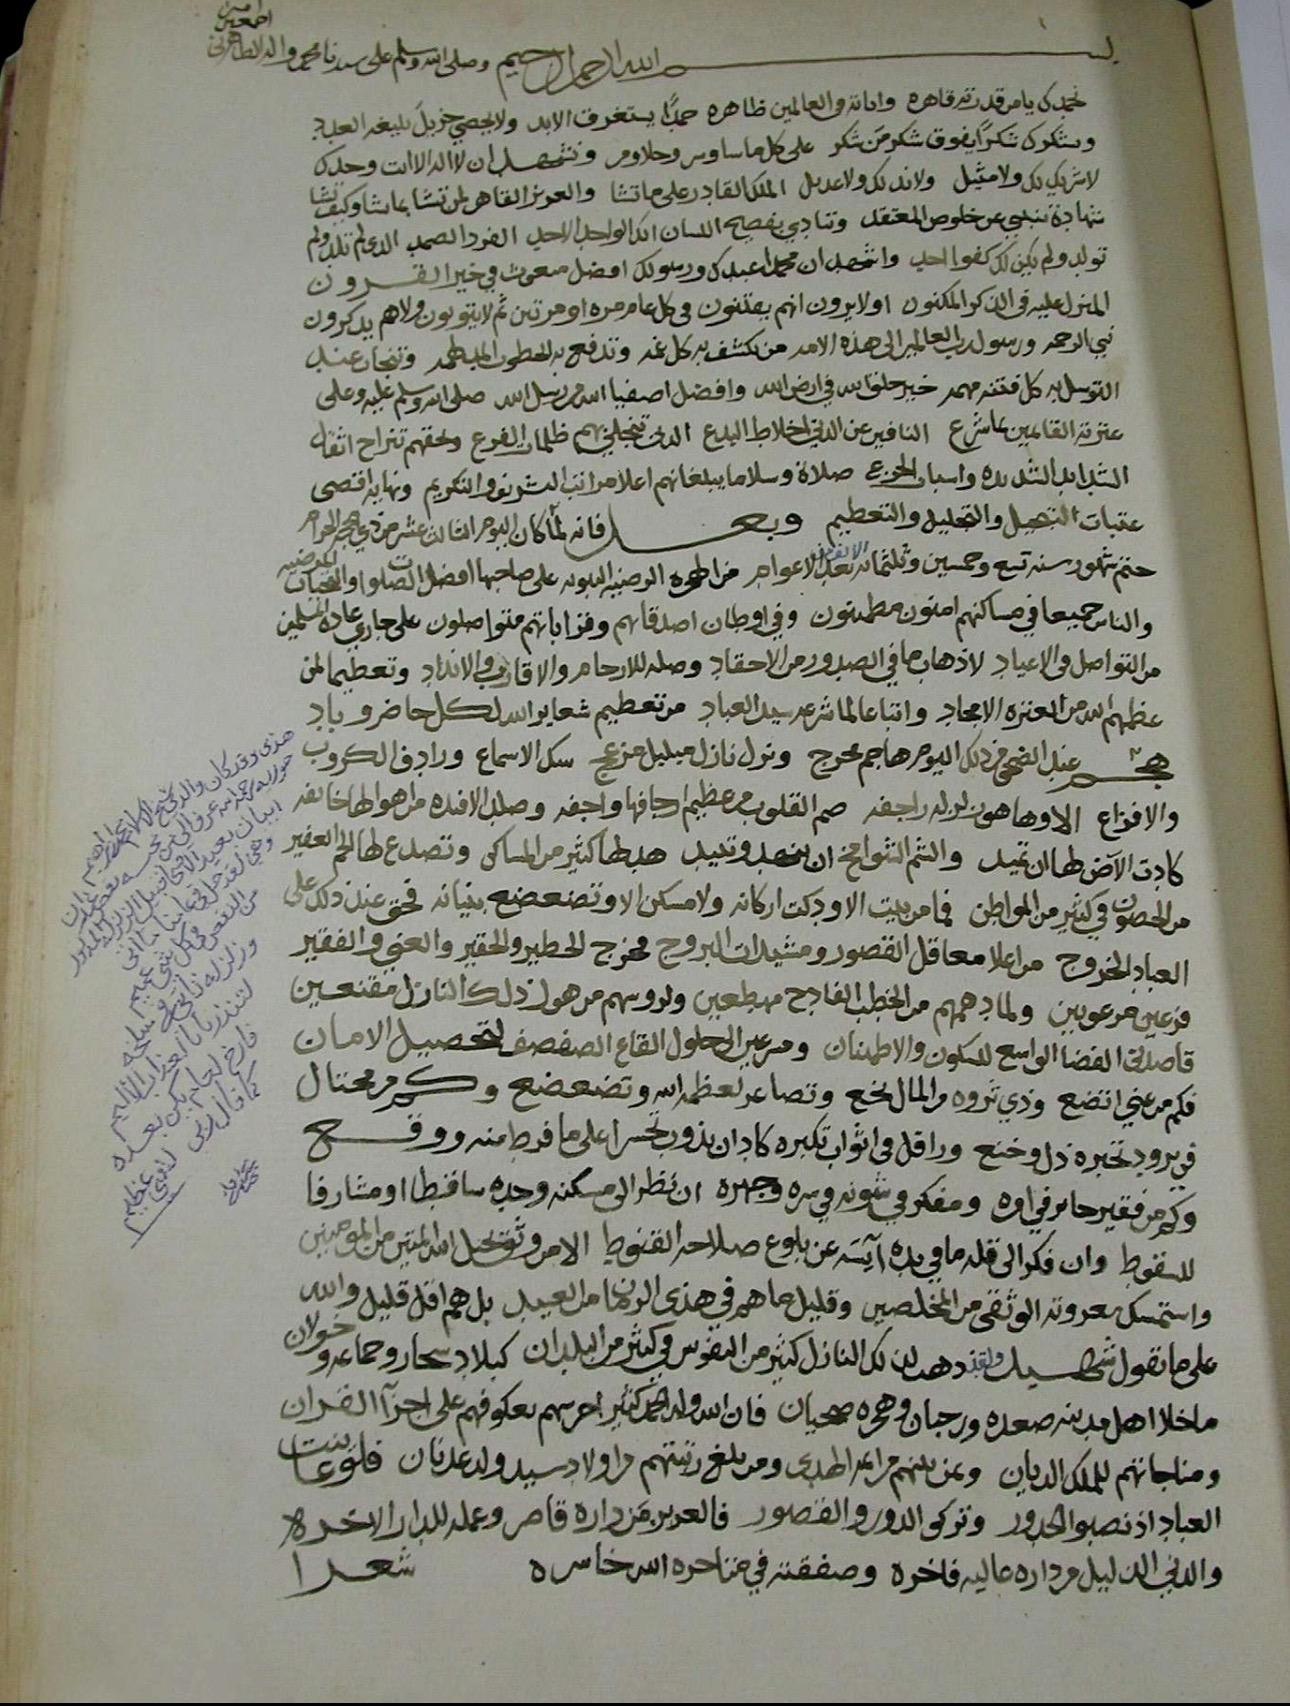 بسم الله الرحمن الرحيم وصلى الله وسلم على سيدنا محمد واله الطاهرين
امين
اجمعين
نحمدك يا من قدرته قاهره واياته في العالمين ظاهره حمدًا يستغرف الابد ولا يحصي جزيل بليغه العدد
ونشكرك شكرًا يفوق شكر من شكر على كل ما سا وسر وحلا ومر ونشهد ان لا اله الا انت وحدك
لا شريك لك ولا مثيل ولا ند لك ولا عديل الملك القادر على ما تشا والعزيز القاهر لمن تشا بما تشا وكيف تشا
شهادة تنبي عن خلوص المعتقد وتنادي بفصيح اللسان انك الواحد الاحد الفرد الصمد الذي لم تلد ولم
تولد ولم يكن لك كفوا احد واشهد ان محمدا عبدك ورسولك افضل مبعوث في خير القرون
المنزل عليه في الذكر المكنون اولا يرون انهم يفتنون في كل عام مره او مرتين ثم لا يتوبون ولا هم يذكرون
نبي الرحمه ورسول رب العالمين الى هذه الامه من تكشف به كل غمه وتدفع به الخطوب المدلهمه وتنجاب عند
التوسل به كل فتنه مهمه خير خلق الله في ارض الله وافضل اصفيا الله من رسل الله صلى الله وسلم عليه وعلى
عترته القايمين بما شرع النافين عن الدين اخلاط البدع الذين تنجلي بهم ظلمات الفزع وبحقهم تنزاح اثقال
الشدايد الشديده واسباب الجزع صلاة وسلاما يبلغانهم اعلا مراتب التشريف والتكريم ونهايه اقصى
عتبات التبجيل والتجليل والتعظيم وبعد فانه لما كان اليوم الثالث عشر من ذي الحجه الحرام
ختم شهور سنه تسع وخمسين وثلثمائه بعد الالف من الاعوام من الهجره الرضيه النبويه على صاحبها افضل الصلوات والتحيات المرضيه
والناس جميعا في مساكنهم امنون مطمئنون وفي اوطان اصدقائهم وقراباتهم متواصلون على جاري عادة المسلمين
من التواصل في الاعياد لاذهاب ما في الصدور من الاحقاد وصله للارحام والاقارب والانداد وتعظيما لمن
عظمهم الله من العتره الامجاد واتباعا لما شرعه سيد العباد من تعظيم شعاير الله لكل حاضر وباد
هجم عند الضحى من ذلك اليوم هاجم محرج ونزل نازل مبلبل مزعج سكك الاسماع ورادف الكروب
والافزاع الا وها هو زلزله راجفه صم القلوب من عظيم ارجافها واجفه وصلد الافئده من اهوالها خائفه
كادت الارض لها ان تميد والشم الشوامخ ان تنهد وتبيد هد بها كثير من المساكن وتصدع لها الجم الغفير
من الحصون في كثير من المواطن فما من بيت الا ودكت اركانه ولا مسكن الا وتضعضع بنيانه فحق عند ذلك على
العباد الخروج من اعلا معاقل القصور ومشيدات البروج فخرج الخطير والحقير والغني والفقير
فزعين مرعوبين ولما دهمهم من الخطب الفادح مهطعين ولروسهم من هول ذلك النازل مقنعين
قاصدين الفضا الواسع للسكون والاطمئنان ومسرعين الى حلول القاع الصفصف لتحصيل الامان
فكم من غني اتضع وذي ثروه من المال نخع وتصاغر لعظمة الله وتضعضع وكم مختال
في برود تجبره ذل وخنع ورافل في اثواب تكبره كاد ان يذوب تحسرا على ما فرط منه ووقع
وكم من فقير حاير في امره ومفكر في شونه في سره وجهره ان نظر الى مسكنه وجده ساقطا او مشارفا
للسقوط وان فكر الى قله ما في يده آيسه عن بلوغ صلاحه القنوط الا من وثق بحبل الله المتين من المومنين
واستمسك بعروته الوثقى من المخلصين وقليل ما هم في هذى الزمان من العبيد بل هم اقل قليل والله
على ما نقول شهيد ولقد ذهب لذلك النازل كثير من النفوس في كثير من البلدان كبلاد سحار وجماعه وخولان
ما خلا اهل مدينه صعده ورحبان وهجره ضحيان فان الله وله الحمد كثير احرسهم بعكوفهم على اجزآ القران
ومناجاتهم للملك الديان وبمن بينهم من ائمه الهدى ومن بلغ رتبتهم من اولاد سيد ولد عدنان فلو عاينت
العباد اذ نصبوا الخدور وتركوا الدور والقصور فالعزيز من داره قاصر وعمله للدار الاخره
والدني الذليل من داره عاليه فاخره وصفقته في متاجره الله خاسره شعرا
هذى وقد كان والدي شيخ الاسلام
ابيات بعد
وزلزله
لتنذرنا العذاب الاليم
كما قال ربي لشي عظيم